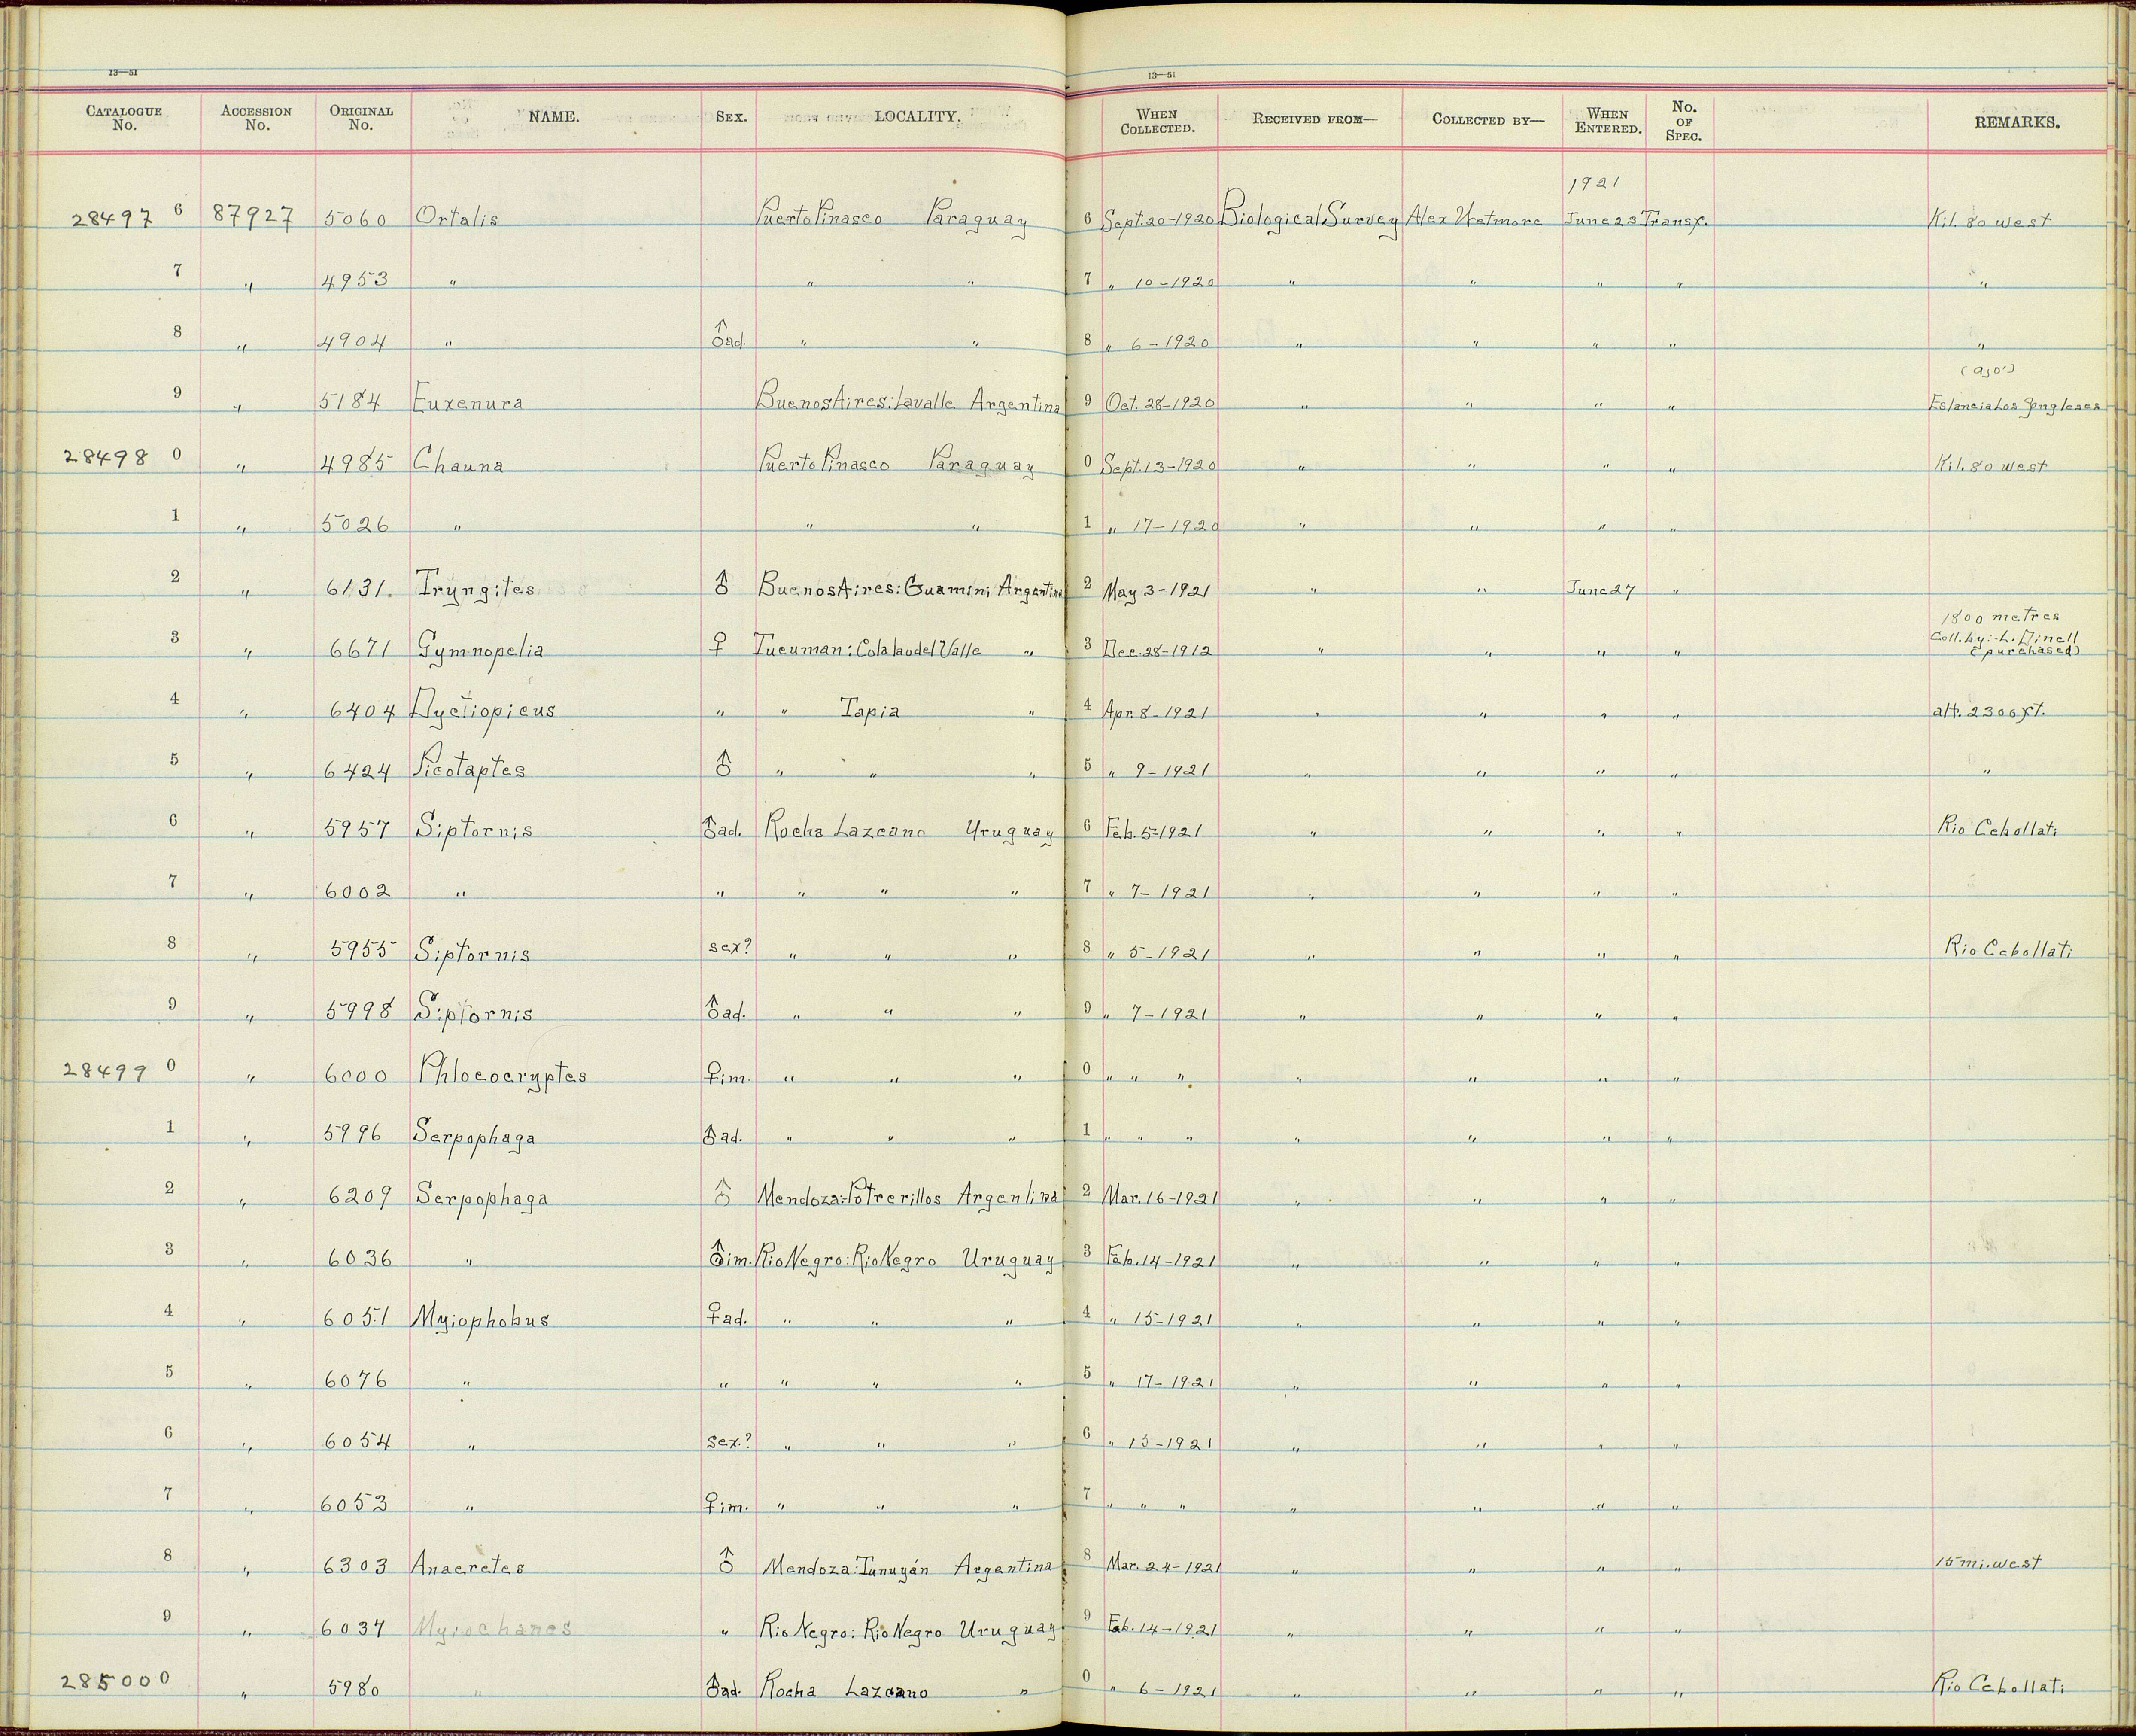 13—51 13—51
CATALOGUE No. ACCESSION No. ORIGINAL No. NAME. SEX. LOCALITY. WHEN COLLECTED. RECEIVED FROM— COLLECTED BY— WHEN ENTERED. No. OF SPEC. REMARKS.
1921
28497 6 87927 5060 Ortalis Puerto Pinasco Paraguay 6 Sept. 20-1920 Biological Survey Alex Wetmore June 23 Transf. Kil. 80 west
7 " 4953 " " " 7 " 10-1920 " " " " "
8 " 4904 " ♂ad. " " 8 " 6-1920 " " " " "
(ajó)
9 " 5184 Euxenura Buenos Aires: Lavalle Argentina 9 Oct. 28-1920 " " " " Estancia Los Yngleses
28498 0 " 4985 Chauna Puerto Pinasco Paraguay 0 Sept. 13-1920 " " " " Kil. 80 west
1 " 5026 " " " 1 " 17-1920 " " " "
2 " 6131. Tryngites ♂ Buenos Aires: Guamini Argentina 2 May 3-1921 " " June 27 "
1800 metres
3 " 6671 Gymnopelia ♀ Tucuman: Colalao del Valle " 3 Dec. 28-1912 " " " " Coll. by:-L. Dinell
(purchased)
4 " 6404 Dyctiopicus " " Tapia " 4 Apr. 8-1921 " " " " alt. 2300 ft.
5 " 6424 Picolaptes ♂ " " " 5 " 9-1921 " " " " "
6 " 5957 Siptornis ♂ad. Rocha Lazcano Uruguay 6 Feb. 5-1921 " " " " Rio Cebollati
7 " 6002 " " " " " 7 " 7-1921 " " " "
8 " 5955 Siptornis sex? " " " 8 " 5-1921 " " " " Rio Cebollati
9 " 5998 Siptornis ♂ad. " " " 9 " 7-1921 " " " "
28499 0 " 6000 Phloeocryptes ♀im. " " " 0 " " " " " " "
1 " 5996 Serpophaga ♂ad. " " " 1 " " " " " " "
2 " 6209 Serpophaga ♂ Mendoza: Potrerillos Argentina 2 Mar. 16-1921 " " " "
3 " 6036 " ♂im. Rio Negro: Rio Negro Uruguay 3 Feb. 14-1921 " " " "
4 " 6051 Myiophobus ♀ad. " " " 4 " 15-1921 " " " "
5 " 6076 " " " " " 5 " 17-1921 " " " "
6 " 6054 " sex.? " " " 6 " 15-1921 " " " "
7 " 6053 " ♀im. " " " 7 " " " " " " "
8 " 6303 Anaeretes ♂ Mendoza: Tunuyán Argentina 8 Mar. 24-1921 " " " " 15 mi. west
9 " 6037 Myiochanes " Rio Negro: Rio Negro Uruguay 9 Feb. 14-1921 " " " "
28500 0 " 5980 " ♂ad. Rocha Lazcano " 0 " 6-1921 " " " " Rio Cebollati